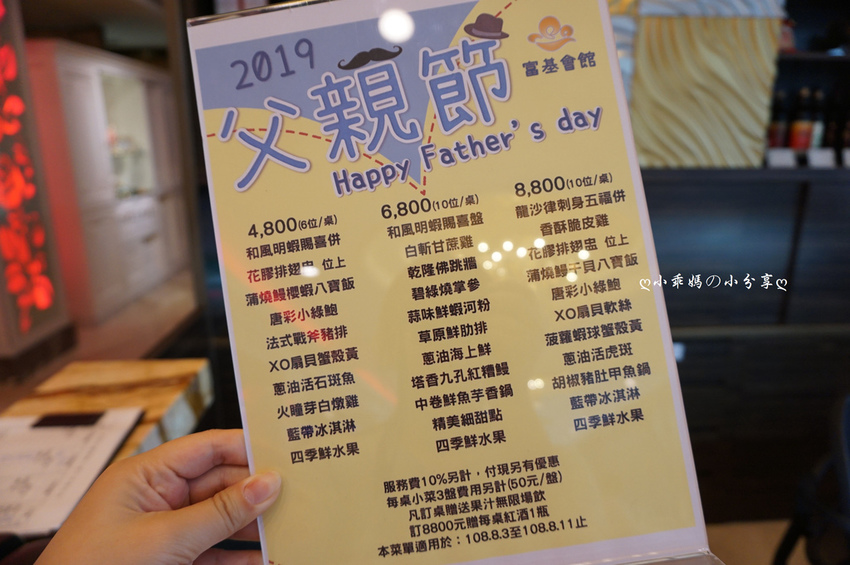 2019
父親節
富基會館
Happy Father's day
4,800(6位/桌)
和風明蝦賜喜併
花膠排翅盅 位上
蒲燒鰻櫻蝦八寶飯
唐彩小綠鮑
法式戰斧豬排
XO扇貝蟹殼黃
蔥油活石斑魚
火瞳芽白燉雞
藍帶冰淇淋
四季鮮水果
6,800(10位/桌)
和風明蝦賜喜盤
白斬甘蔗雞
乾隆佛跳牆
碧綠燒掌參
蒜味鮮蝦河粉
草原鮮肋排
蔥油海上鮮
塔香九孔紅糟鰻
中卷鮮魚芋香鍋
精美細甜點
四季鮮水果
8,800(10位/桌)
龍沙律刺身五福併
香酥脆皮雞
花膠排翅盅 位上
蒲燒鰻干貝八寶飯
唐彩小綠鮑
XO扇貝軟絲
菠蘿蝦球蟹殼黃
蔥油活虎斑
胡椒豬肚甲魚鍋
藍帶冰淇淋
四季鮮水果
服務費10%另計，付現另有優惠
每桌小菜3盤費用另計(50元/盤)
凡訂桌贈送果汁無限場飲
訂8800元贈每桌紅酒1瓶
本菜單適用於：108.8.3至108.8.11止
ღ小乖媽の小分享ღ